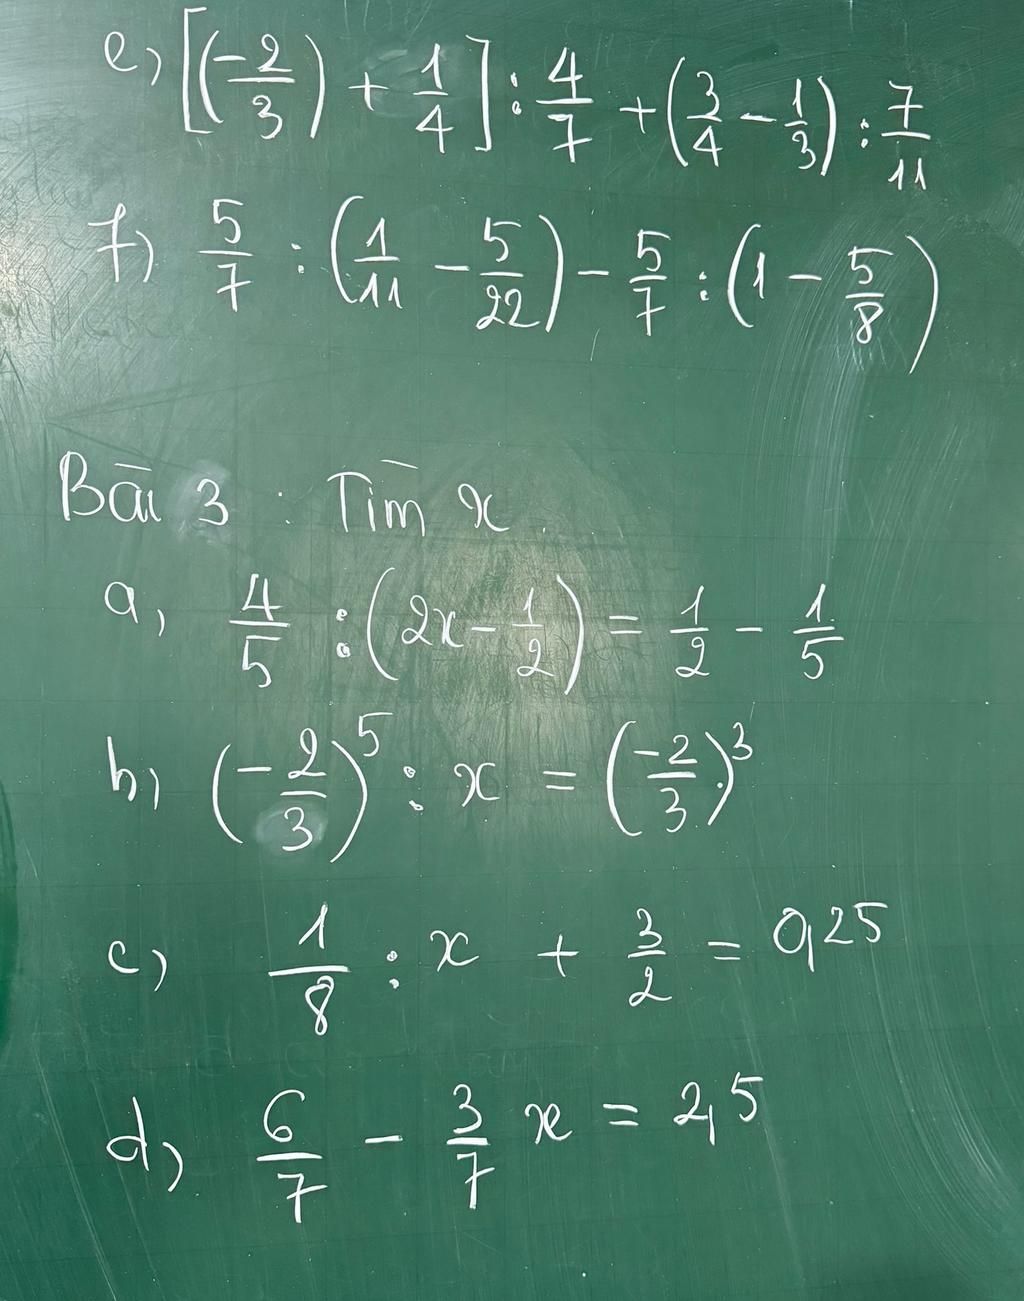 e, [(-2/3) + 1/4] : 4/7 + (3/4 - 1/3) : 7/11
f) 5/7 : (1/11 - 5/22) - 5/7 : (1 - 5/8)
Bài 3 : Tìm x
a, 4/5 : (2x - 1/2) = 1/2 - 1/5
b, (-2/3)^5 : x = (-2/3)^3
c, 1/8 : x + 3/2 = 0,25
d, 6/7 - 3/7 x = 2,5